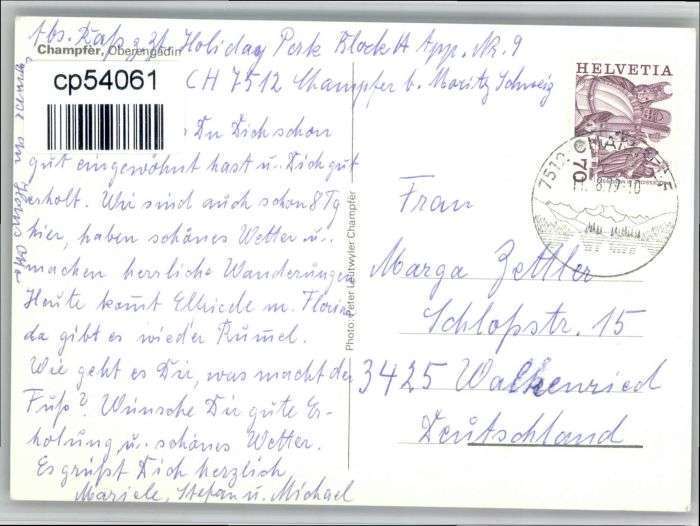 Abs. z. Zt. Holiday Park Block A App. Nr. 9
Champfèr, Oberengadin
CH 7512 Champfer b. Moritz Schweiz
cp54061
Du Dich schon
gut eingewöhnt hast u. Dich gut
erholt. Wir sind auch schon 8 Tg
hier, haben schönes Wetter u.
machen herrliche Wanderungen
Heute komt Elfriede m. Florian
da gibt es wieder Rumel.
Wie geht es Dir, was macht der
Fuß? Wünsche Dir gute Er-
holung, u. schönes Wetter.
Es grüßt Dich herzlich
Mariele, Stefan u. Michael
Photo: Peter Leutwyler Champfèr
HELVETIA
70
7512 CHAMPFÈR
Frau
Marga Zettler
Schloßstr. 15
3425 Walkenried
Deutschland